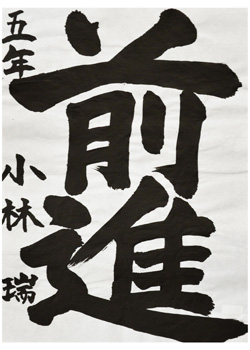 前進
五年 小林 瑞